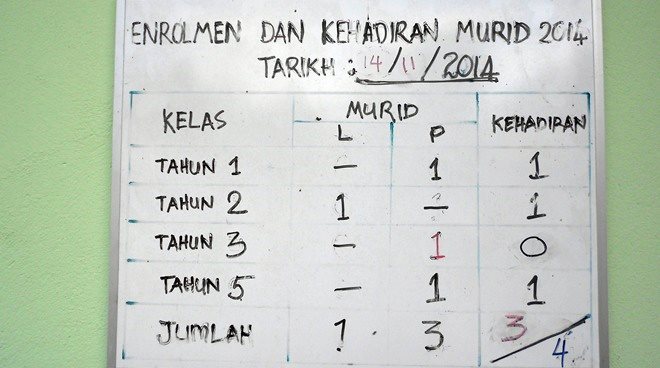 ENROLMEN DAN KEHADIRAN MURID 2014
TARIKH : 14/11/2014
KELAS MURID KEHADIRAN
L P
TAHUN 1 – 1 1
TAHUN 2 1 – 1
TAHUN 3 – 1 0
TAHUN 5 – 1 1
JUMLAH 1 3 3/4